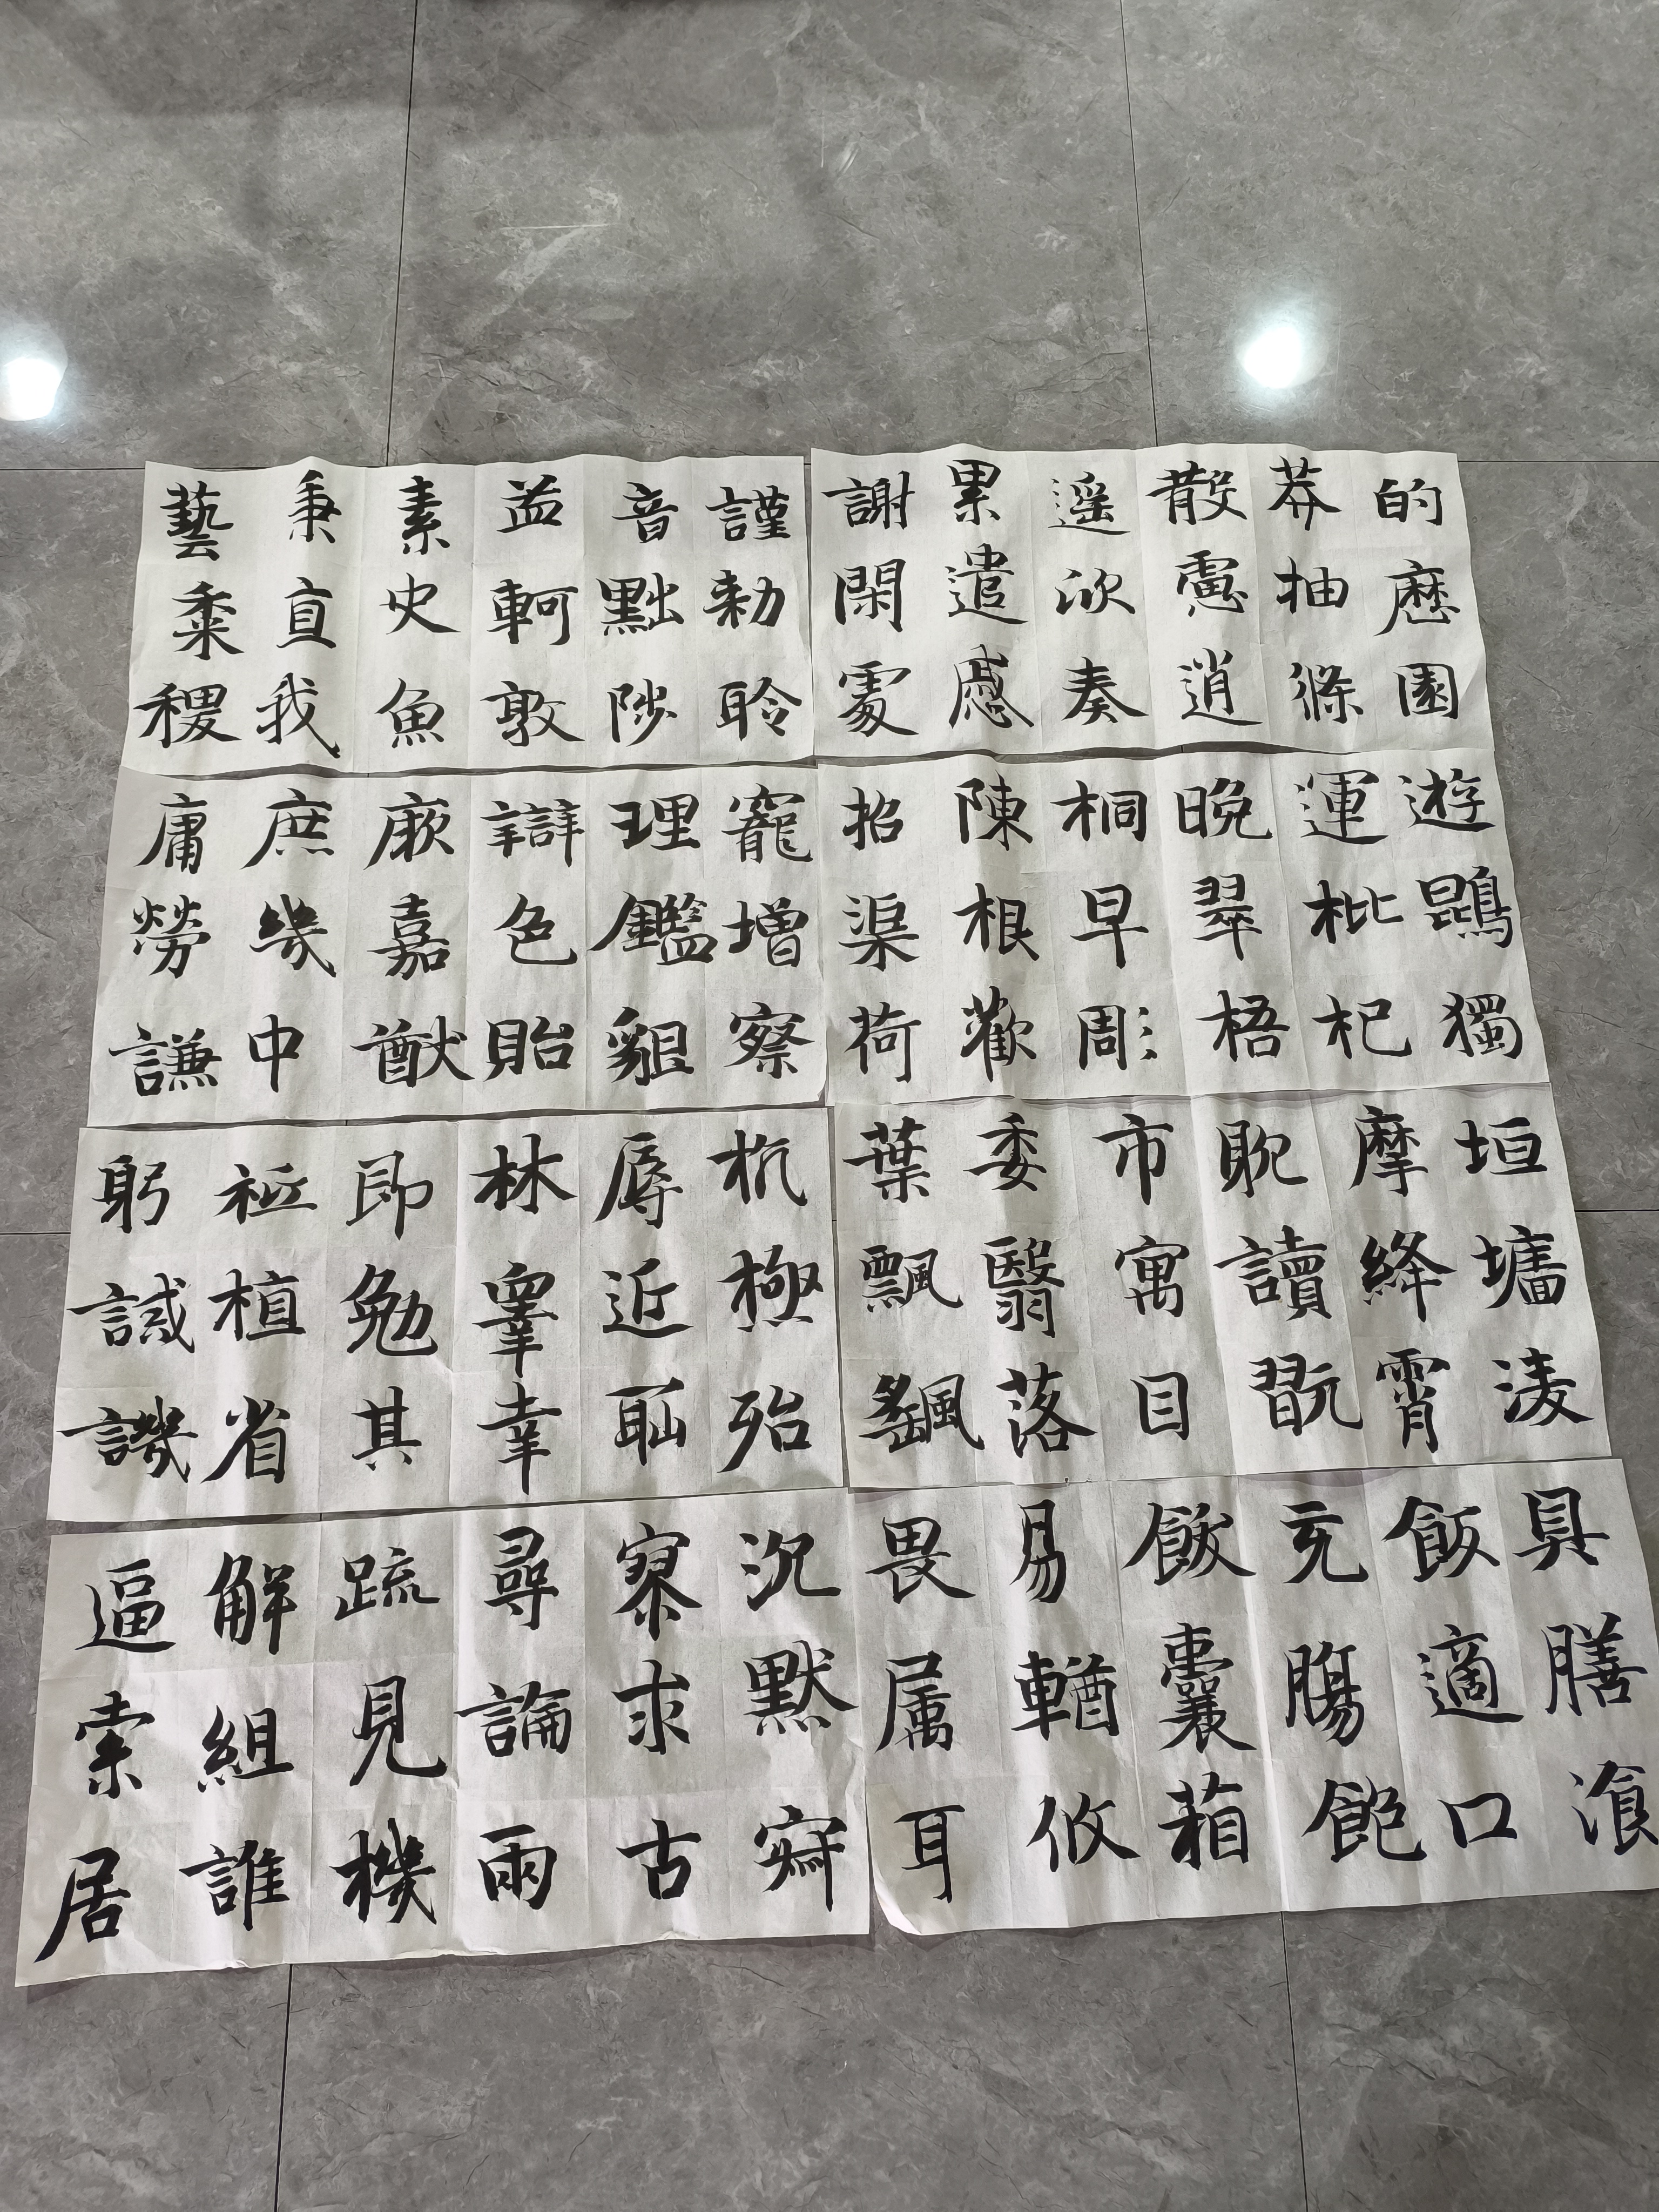 的歷園
莽抽條
散慮逍
遥欣奏
累遣慼
謝閑處
謹勅聆
音黜陟
孟軻敦
素史魚
秉直我
藝黍稷
遊鵾獨
運枇杷
晚翠梧
桐早彫
陳根歡
招渠荷
寵增察
理鑑貌
辯色貽
厥嘉猷
庶幾中
庸勞謙
垣墻凌
摩絳霄
耽讀翫
市寓目
委翳落
葉飄颻
杭極殆
辱近恥
林睪幸
即勉其
祗植省
躬誡譏
具膳飡
飯適口
充腸飽
飫囊箱
易輶攸
畏属耳
沉默寂
寥求古
尋論兩
疏見機
解組誰
逼索居